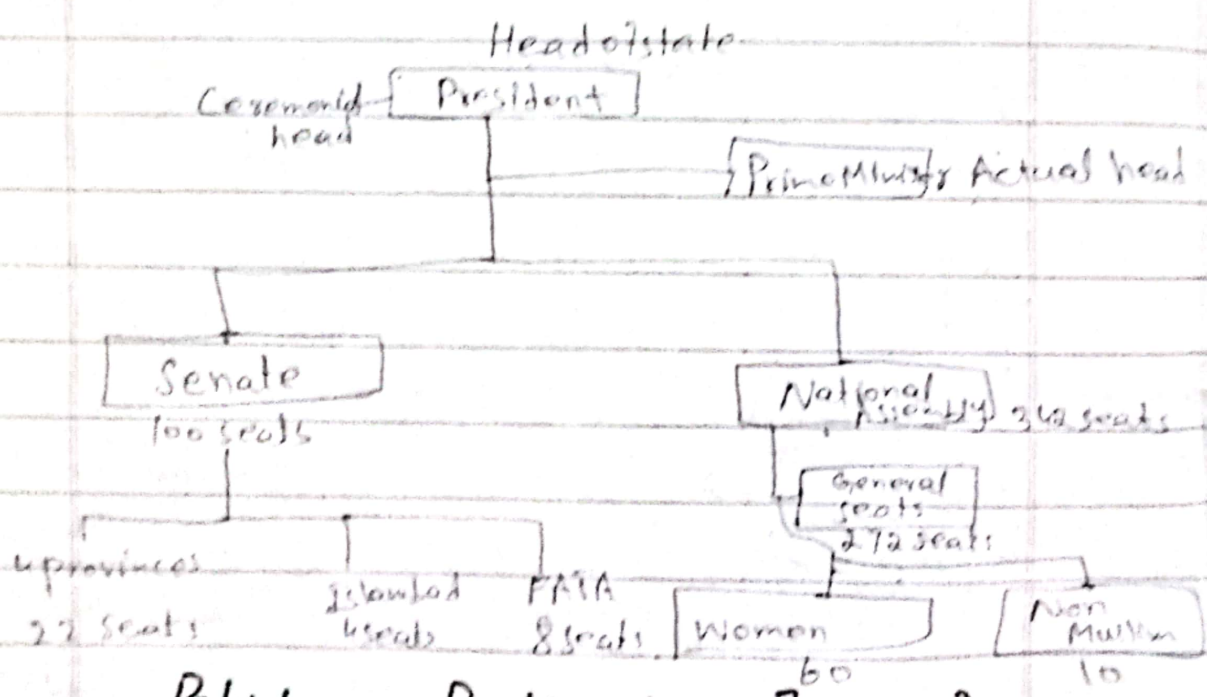 Head of state
Ceremonial
head
President
Prime Minister Actual head
Senate
100 seats
National
Assembly 342 seats
General
seats
272 seats
4 provinces
22 seats
Islambad
4 seats
FATA
8 seats
Women
60
Non
Muslim
10